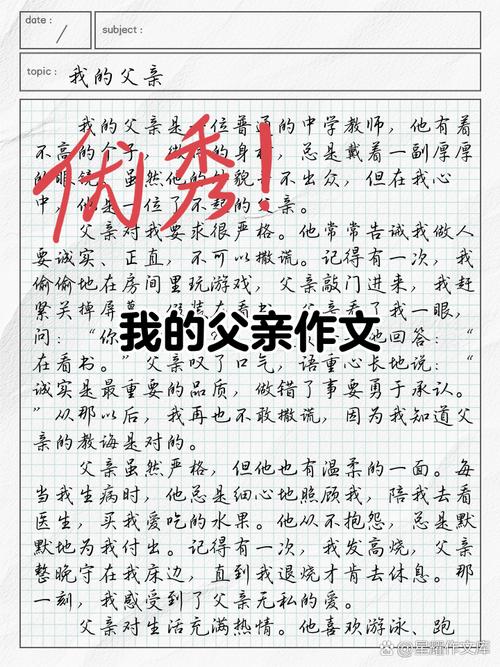 date :
subject:
topic: 我的父亲
我的父亲是一位普通的中学教师，他有着
不高的个子、微胖的身材，总是戴着一副厚厚
的眼镜。虽然他的外貌并不出众，但在我心
中，他是一位了不起的父亲。
优秀！
父亲对我要求很严格。他常常告诫我做人
要诚实、正直，不可以撒谎。记得有一次，我
偷偷地在房间里玩游戏，父亲敲门进来，我赶
紧关掉屏幕，假装在看书。父亲看了我一眼，
问：“你
他回答：“
我的父亲作文
在看书。”父亲叹了口气，语重心长地说：“
诚实是最重要的品质，做错了事要勇于承认。
”从那以后，我再也不敢撒谎，因为我知道父
亲的教诲是对的。
父亲虽然严格，但他也有温柔的一面。每
当我生病时，他总是细心地照顾我，陪我去看
医生，买我爱吃的水果。他从不抱怨，总是默
默地为我付出。记得有一次，我发高烧，父亲
整晚守在我床边，直到我退烧才肯去休息。那
一刻，我感受到了父亲无私的爱。
父亲对生活充满热情。他喜欢游泳、跑
星耀作文库